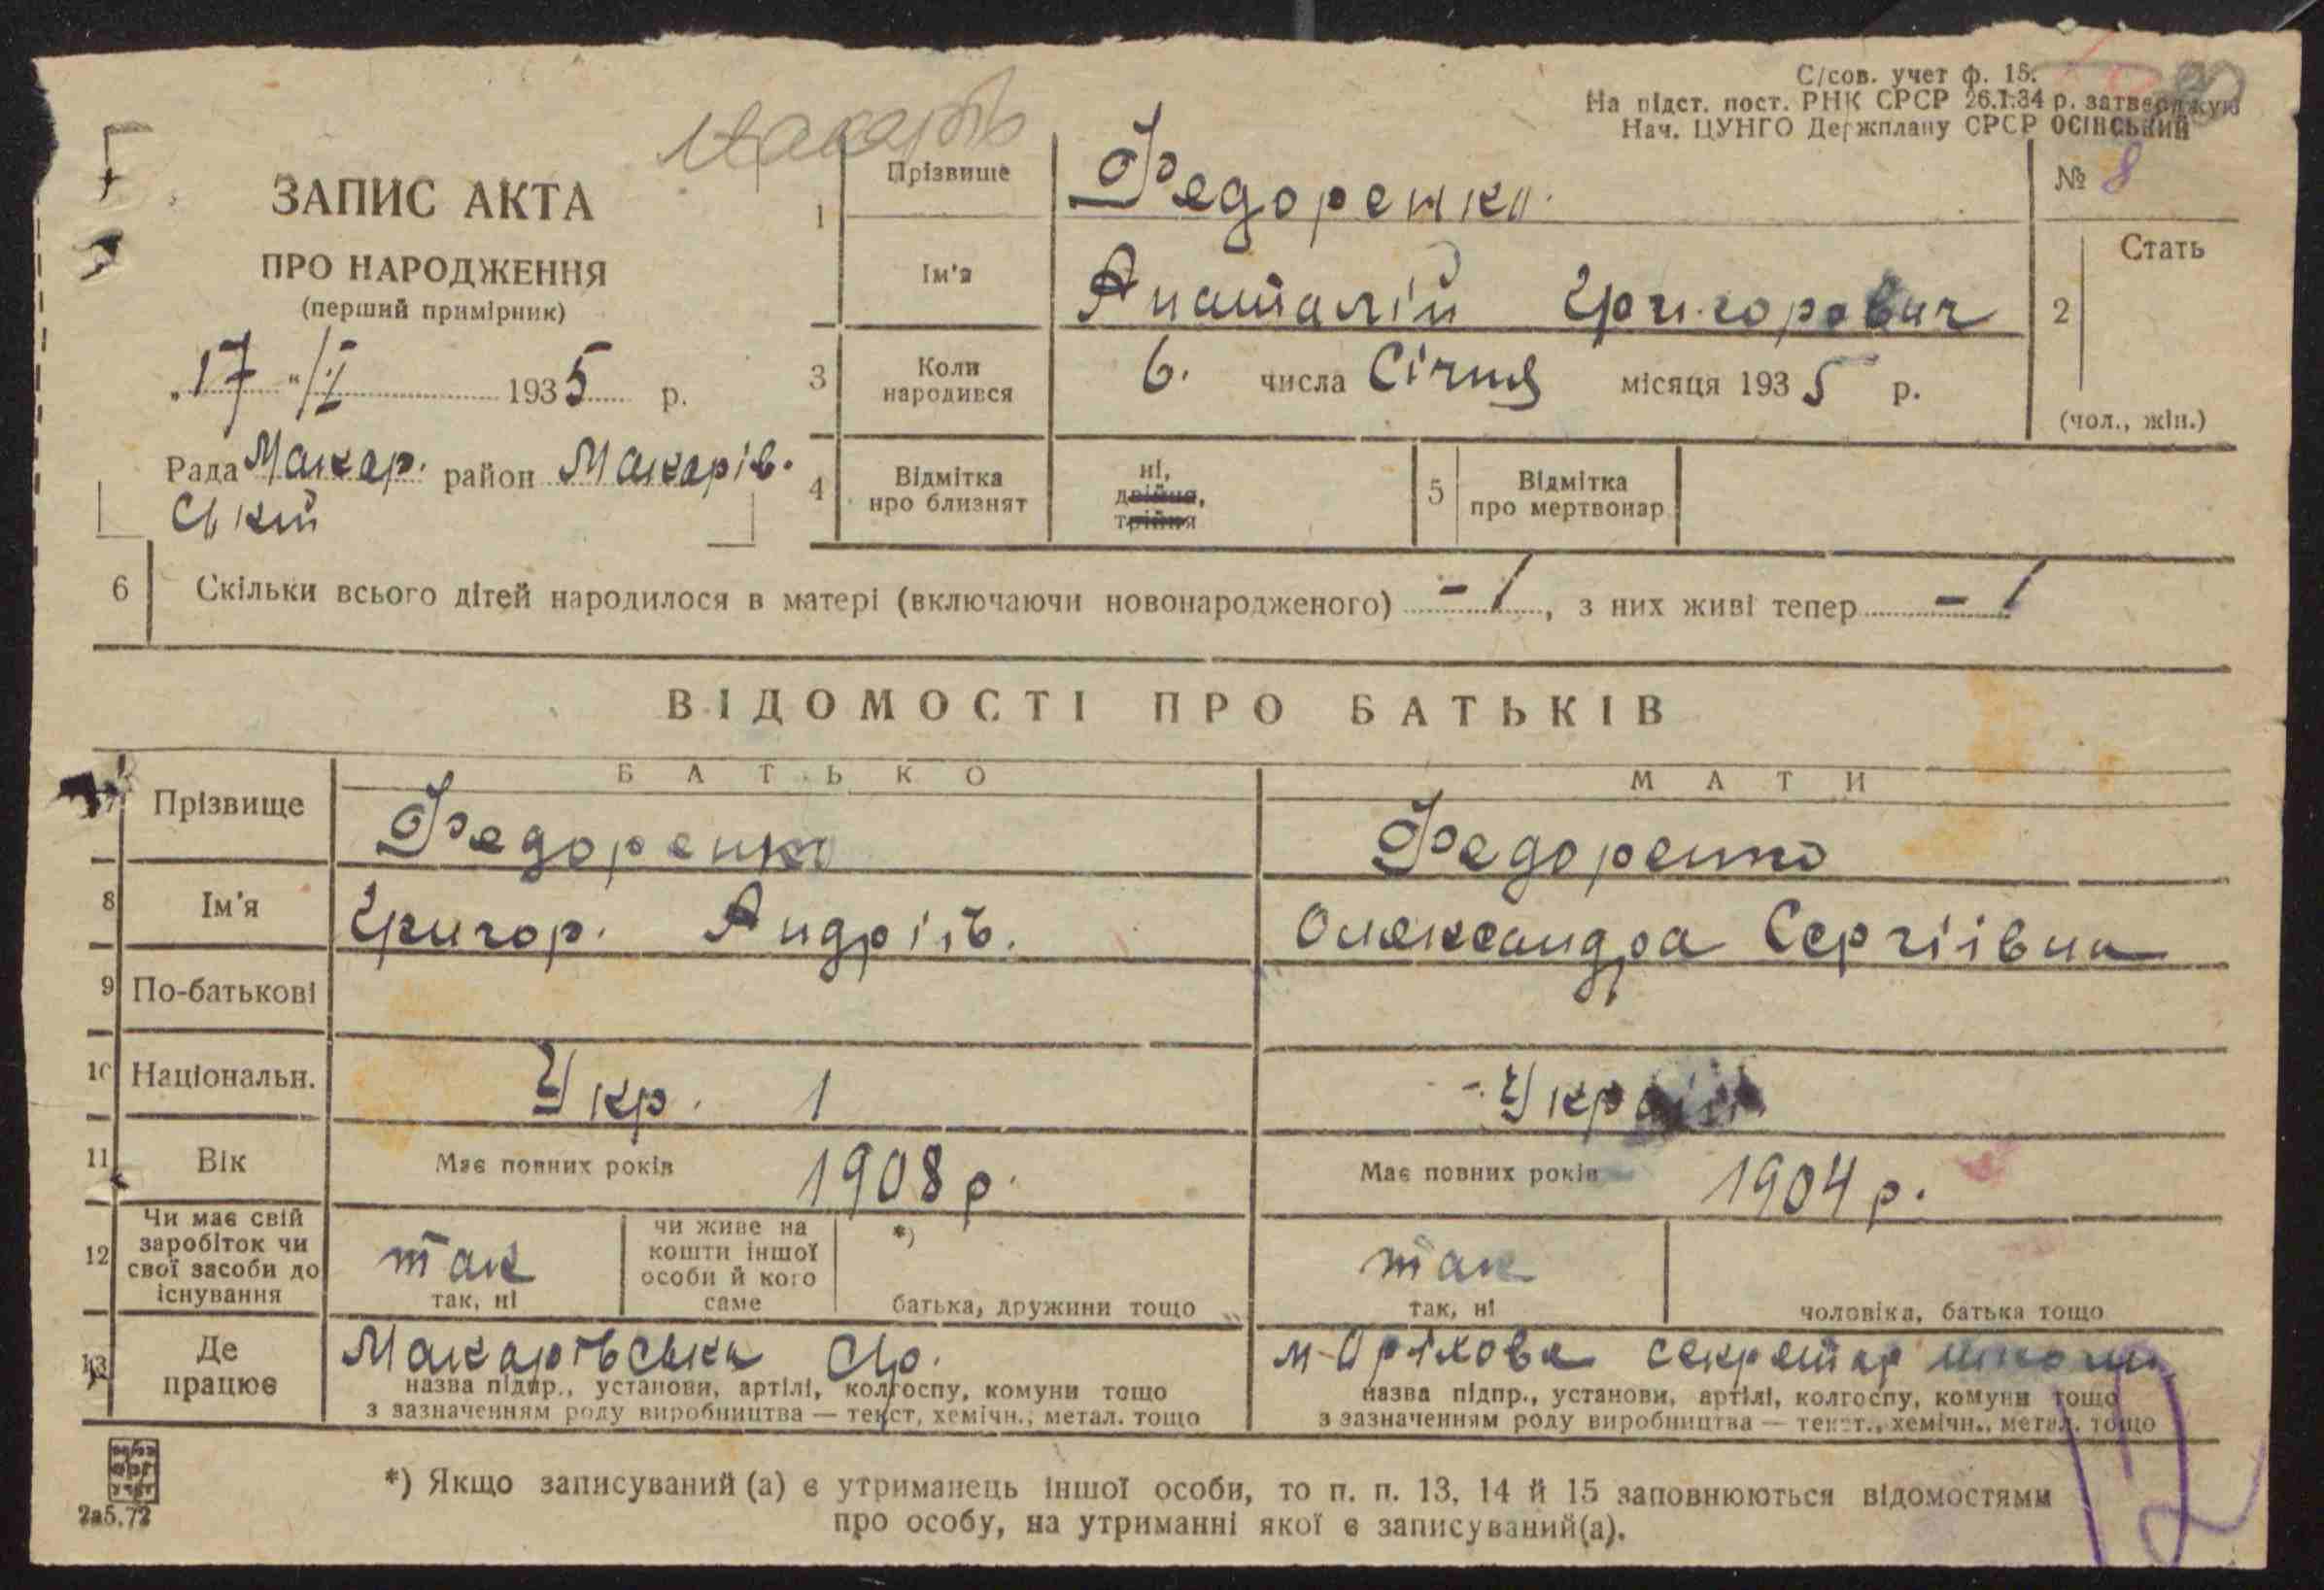 С/сов. учет ф. 15.
На підст. пост. РНК СРСР 26.I.34 р. затверджую
Нач. ЦУНГО Держплану СРСР ОСІНСЬКИЙ
Макарів
ЗАПИС АКТА
ПРО НАРОДЖЕННЯ
(перший примірник)
„17“ /I 1935 р.
Рада Макар. район Макарів.
ський
1 Прізвище Федоренко
№ 8
Ім'я Анаталій Григорович
2 Стать
(чол., жін.)
3 Коли народився 6. числа Січня місяця 1935 р.
4 Відмітка про близнят ні, двійня, трійня
5 Відмітка про мертвонар
6 Скільки всього дітей народилося в матері (включаючи новонародженого) - 1, з них живі тепер - 1
ВІДОМОСТІ ПРО БАТЬКІВ
БАТЬКО МАТИ
7 Прізвище Федоренко Федоренко
8 Ім'я Григор. Андріїв. Олександра Сергіївна
9 По-батькові
10 Національн. Укр. 1 - Україн
11 Вік Має повних років 1908 р. Має повних років 1904 р.
12 Чи має свій заробіток чи свої засоби до існування так так, ні чи живе на кошти іншої особи й кого саме *) батька, дружини тощо так так, ні чоловіка, батька тощо
13 Де працює Макарівська м-Оріхова секретар школи
назва підпр., установи, артілі, колгоспу, комуни тощо назва підпр., установи, артілі, колгоспу, комуни тощо
з зазначенням роду виробництва — текст, хемічн., метал. тощо з зазначенням роду виробництва — текст., хемічн., метал. тощо
*) Якщо записуваний (а) є утриманець іншої особи, то п. п. 13, 14 й 15 заповнюються відомостями
про особу, на утриманні якої є записуваний(а).
2а5.72